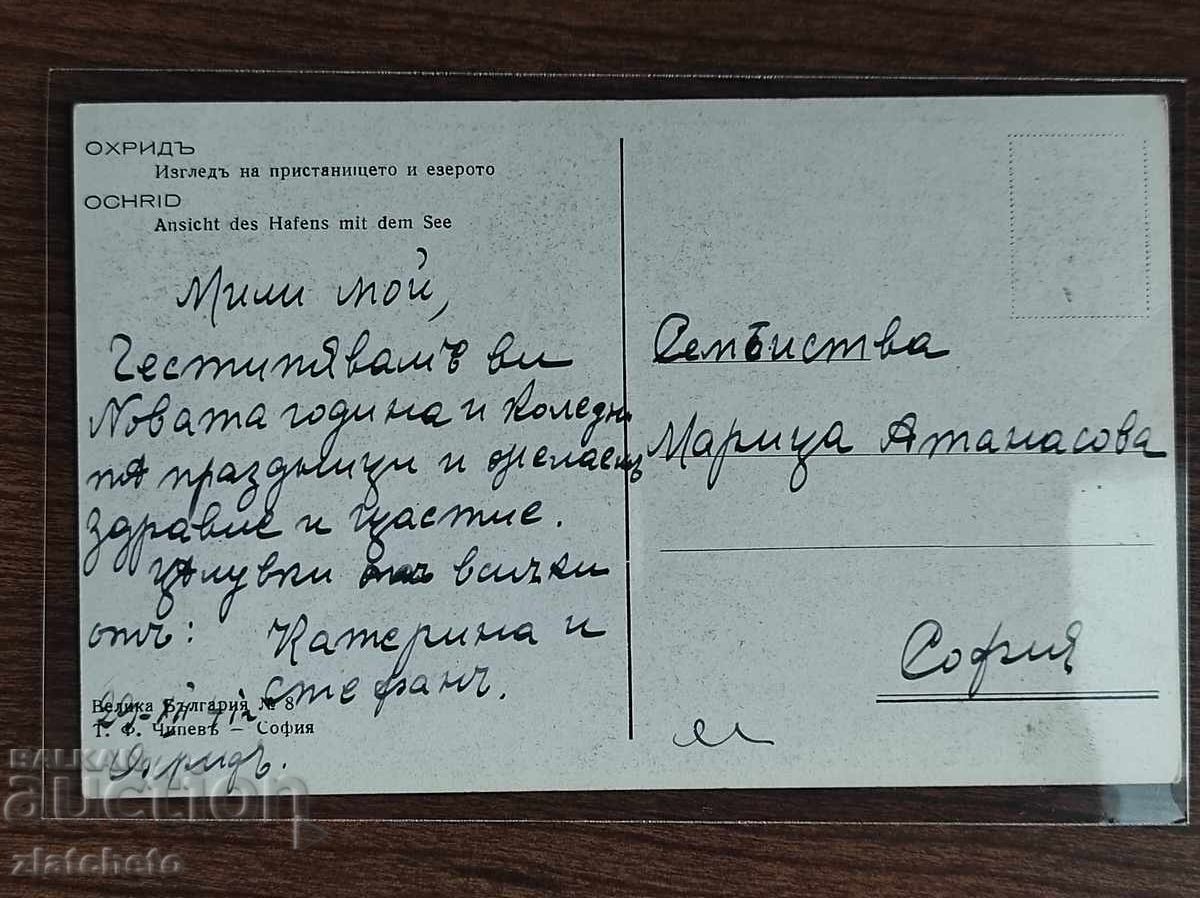 ОХРИДЪ
Изгледъ на пристанището и езерото
OCHRID
Ansicht des Hafens mit dem See
Мили мой,
Честитявамъ ви
Новата година и Коледни
тѣ празници и желаемъ
здравие и щастие.
Цѣлувки отъ всички
отъ: Катерина и
Стефанъ.
Велика България № 8
Т. Ф. Чипевъ – София
Охридъ.
Семѣиства
Марица Атанасова
София
BALKAN
auction
zlatcheto